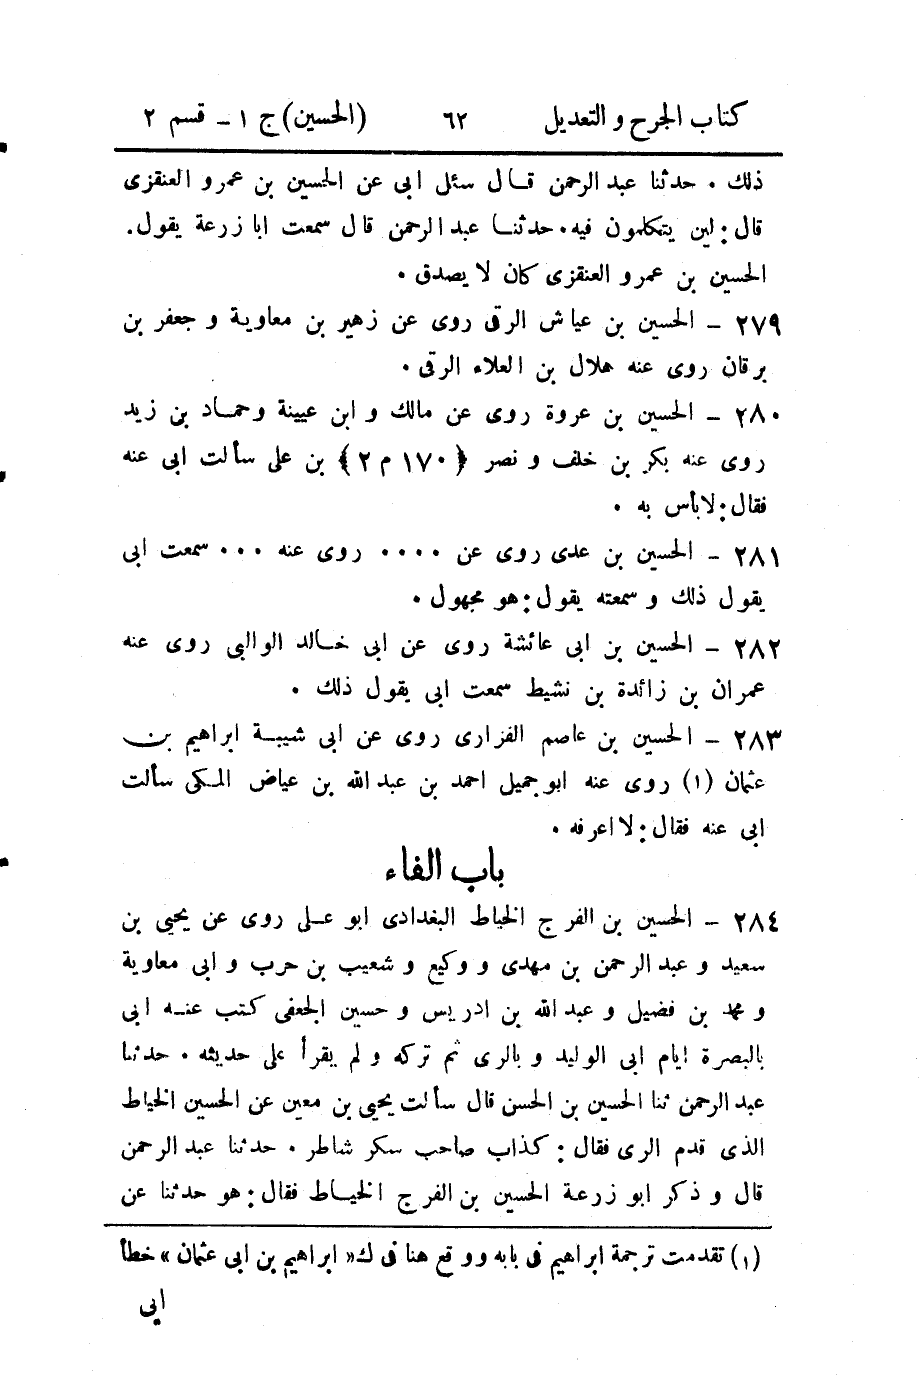 كتاب الجرح والتعديل ٦٢ (الحسين) ج ١ - قسم ٢
ذلك . حدثنا عبد الرحمن قال سئل ابى عن الحسين بن عمرو العنقزى
قال: لين يتكلمون فيه . حدثنا عبد الرحمن قال سمعت ابا زرعة يقول .
الحسين بن عمرو العنقزى كان لا يصدق .
٢٧٩ - الحسين بن عياش الرقى روى عن زهير بن معاوية و جعفر بن
برقان روى عنه هلال بن العلاء الرقى .
٢٨٠ - الحسين بن عروة روى عن مالك و ابن عيينة وحماد بن زيد
روى عنه بكر بن خلف و نصر ﴿١٧٠ م ٢﴾ بن على سألت ابى عنه
فقال: لابأس به .
٢٨١ - الحسين بن عدى روى عن .... روى عنه ... سمعت ابى
يقول ذلك و سمعته يقول: هو مجهول .
٢٨٢ - الحسين بن ابى عائشة روى عن ابى خالد الوالبى روى عنه
عمران بن زائدة بن نشيط سمعت ابى يقول ذلك .
٢٨٣ - الحسين بن عاصم الفزارى روى عن ابى شيبة ابراهيم بن
عثمان (١) روى عنه ابو جميل احمد بن عبد الله بن عياض المكى سألت
ابى عنه فقال: لا اعرفه .
باب الفاء
٢٨٤ - الحسين بن الفرج الخياط البغدادى ابو على روى عن يحيى بن
سعيد و عبد الرحمن بن مهدى و وكيع و شعيب بن حرب و ابى معاوية
و محمد بن فضيل و عبد الله بن ادريس و حسين الجعفى كتب عنه ابى
بالبصرة ايام ابى الوليد و بالرى ثم تركه و لم يقرأ على حديثه . حدثنا
عبد الرحمن ثنا الحسين بن الحسن قال سألت يحيى بن معين عن الحسين الخياط
الذى قدم الرى فقال: كذاب صاحب سكر شاطر . حدثنا عبد الرحمن
قال و ذكر ابو زرعة الحسين بن الفرج الخياط فقال: هو حدثنا عن
(١) تقدمت ترجمة ابراهيم فى بابه ووقع هنا فى ك « ابراهيم بن ابى عثمان » خطأ
ابى